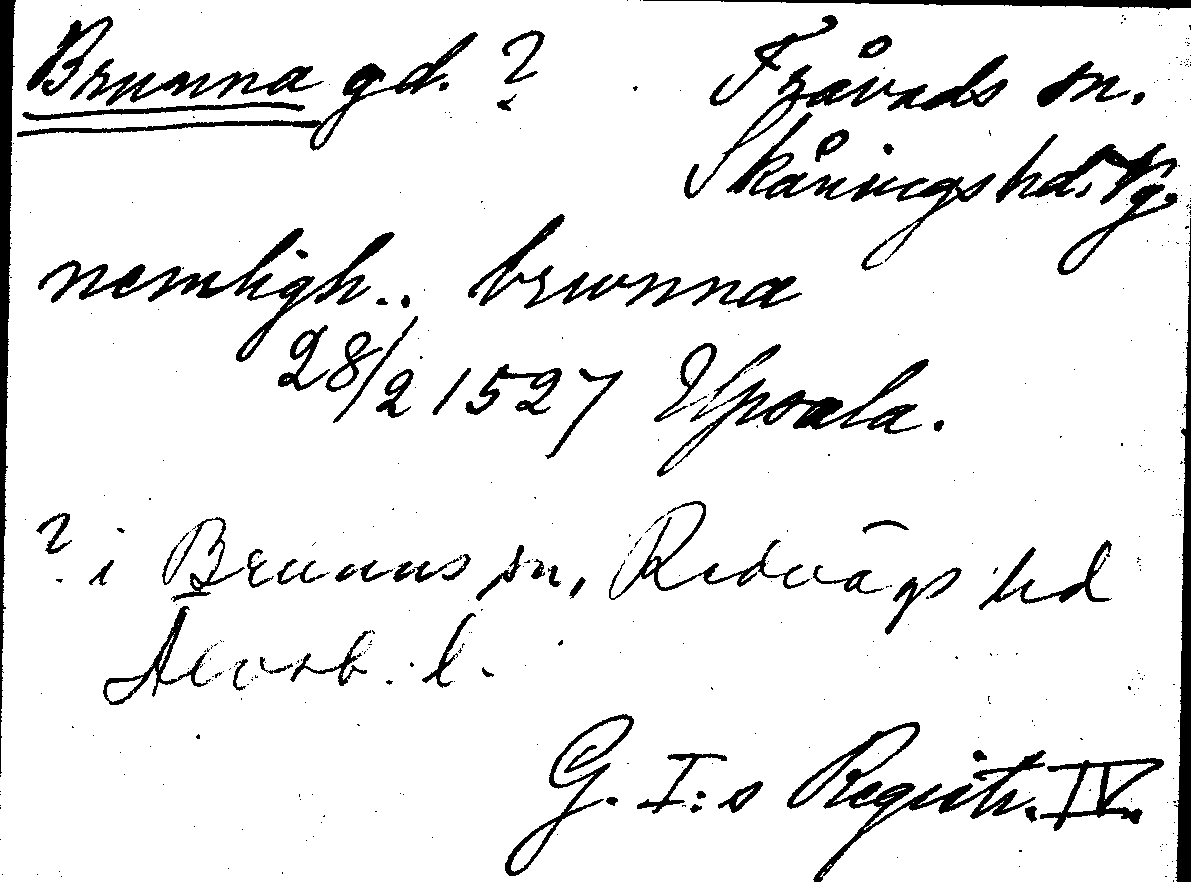 Brunna gd. ? Fråvads sn.
Skånings hd. Vg.
nemligh.. brwnna
28/2 1527 Upsala.
? i Brunns sn, Redvägs hd
Älvsb. l.
G. I:s Registr. IV.